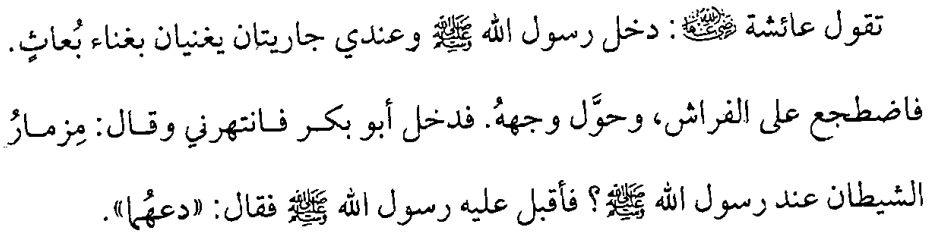 تقول عائشة رضي الله عنها: دخل رسول الله ﷺ وعندي جاريتان يغنيان بغناء بُعاثٍ.
فاضطجع على الفراش، وحوَّل وجههُ. فدخل أبو بكر فانتهرني وقال: مِزمارُ
الشيطان عند رسول الله ﷺ؟ فأقبل عليه رسول الله ﷺ فقال: «دعهُما».